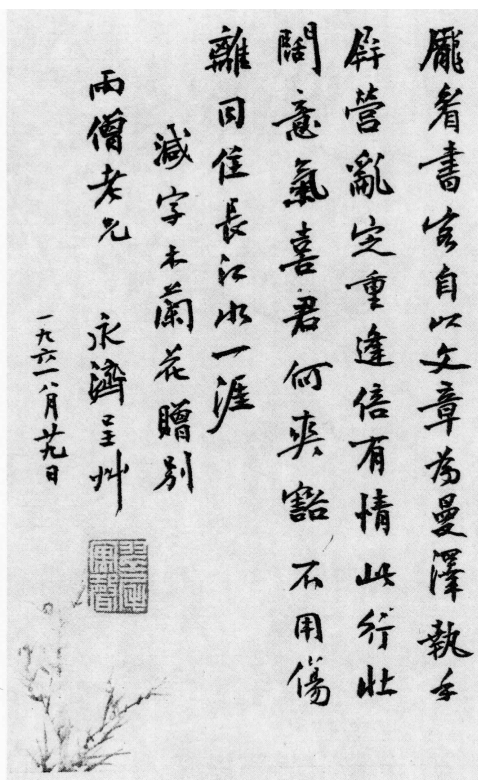 龎眉書客自以文章為曼澤執手
屏營亂定重逢倍有情此行壯
闊意氣喜君何爽豁不用傷
離同住長江水一涯
減字木蘭花贈別
雨僧老兄 永濟呈艸
一九六一八月廿九日